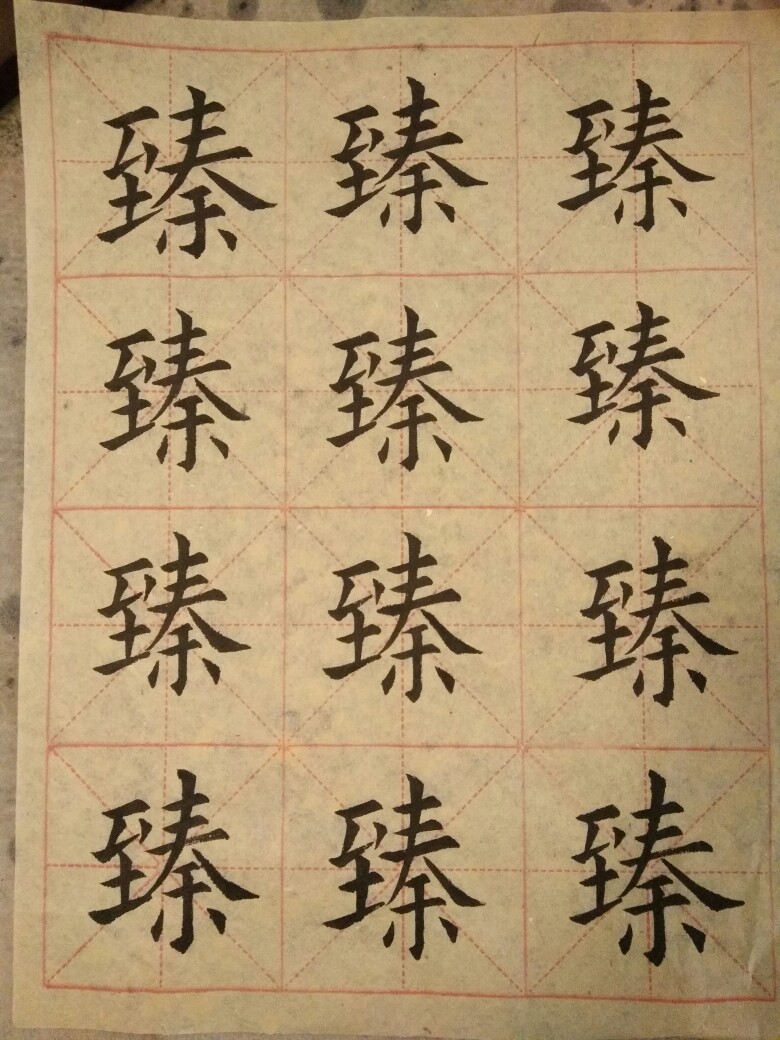 臻臻臻
臻臻臻
臻臻臻
臻臻臻